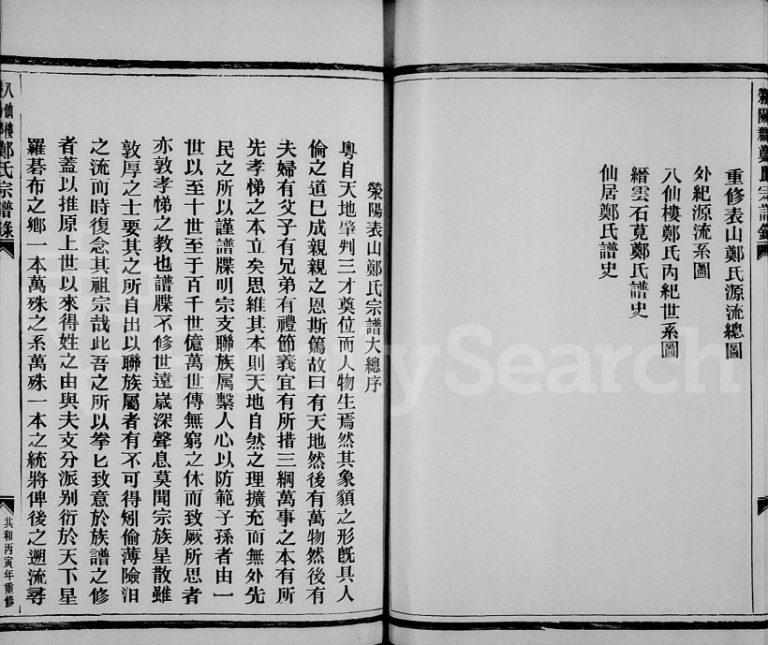 重修表山鄭氏源流總圖
外紀源流系圖
八仙樓鄭氏丙紀世系圖
縉雲石莧鄭氏譜史
仙居鄭氏譜史
滎陽表山鄭氏宗譜大總序
粵自天地肇判三才奠位而人物生焉然其象類之形旣具人
倫之道已成親親之恩斯篤故曰有天地然後有萬物然後有
夫婦有父子有兄弟有禮節義宜有所措三綱萬事之本有所
先孝悌之本立矣思維其本則天地自然之理擴充而無外先
民之所以謹譜牒明宗支聯族属繫人心以防範子孫者由一
世以至十世至于百千世億萬世傳無窮之休而致厥所思者
亦敦孝悌之教也譜牒不修世遠嵗深聲息莫聞宗族星散雖
敦厚之士要其之所自出以聯族屬者有不可得矧偷薄險汨
之流而時復念其祖宗哉此吾之所以拳匕致意於族譜之修
者蓋以推原上世以來得姓之由與夫支分派别衍於天下星
羅碁布之鄉一本萬殊之系萬殊一本之統將俾後之遡流尋
八仙樓
鄭氏宗譜錄
共和丙寅年重修